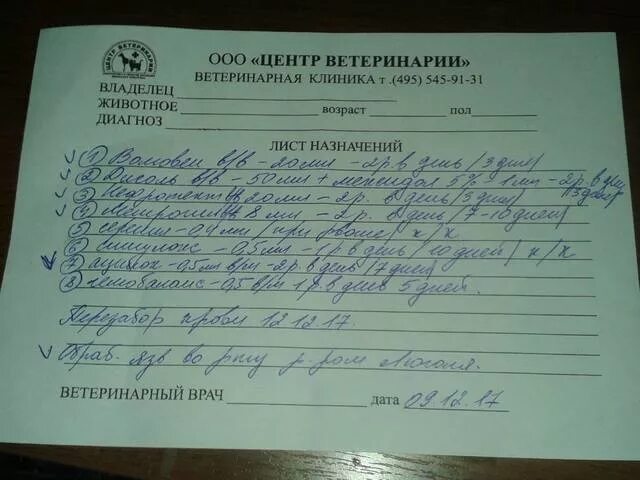 ЦЕНТР ВЕТЕРИНАРИИ
ООО «ЦЕНТР ВЕТЕРИНАРИИ»
ВЕТЕРИНАРНАЯ КЛИНИКА т .(495) 545-91-31
ВЛАДЕЛЕЦ
ЖИВОТНОЕ возраст пол
ДИАГНОЗ
ЛИСТ НАЗНАЧЕНИЙ
1 в/в - 20 мл - 2 р. в день /3 дня/
2 Дисоль в/в - 50 мл + 5% 1 мл - 2 р. в день
/3 дня/
3 20 мл - 2 р. в день /3 дня/
4 8 мл - 2 р. в день /7-10 дней/
5 серения - 0,4 мл /при рвоте/ п/к
6 синулокс - 0,5 мл - 1 р. в день /10 дней/ п/к
7 - 0,5 мл в/м - 2 р. в день /7 дней/
8 гемобаланс - 0,5 в/м 1 р. в день 5 дней.
Перезабор крови 12.12.17.
Обраб. язв во рту р-ром Люголя.
ВЕТЕРИНАРНЫЙ ВРАЧ дата 09.12.17